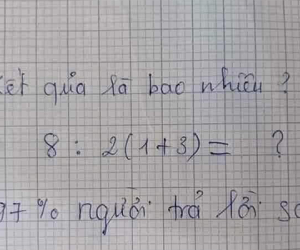 kết quả là bao nhiêu ?
8 : 2(1+3) = ?
97% người trả lời